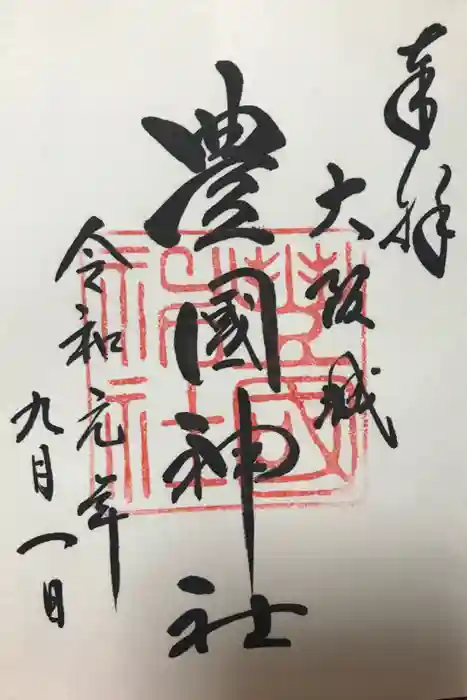 奉拝
大阪城
豊國神社
令和元年
九月一日
豊國神社